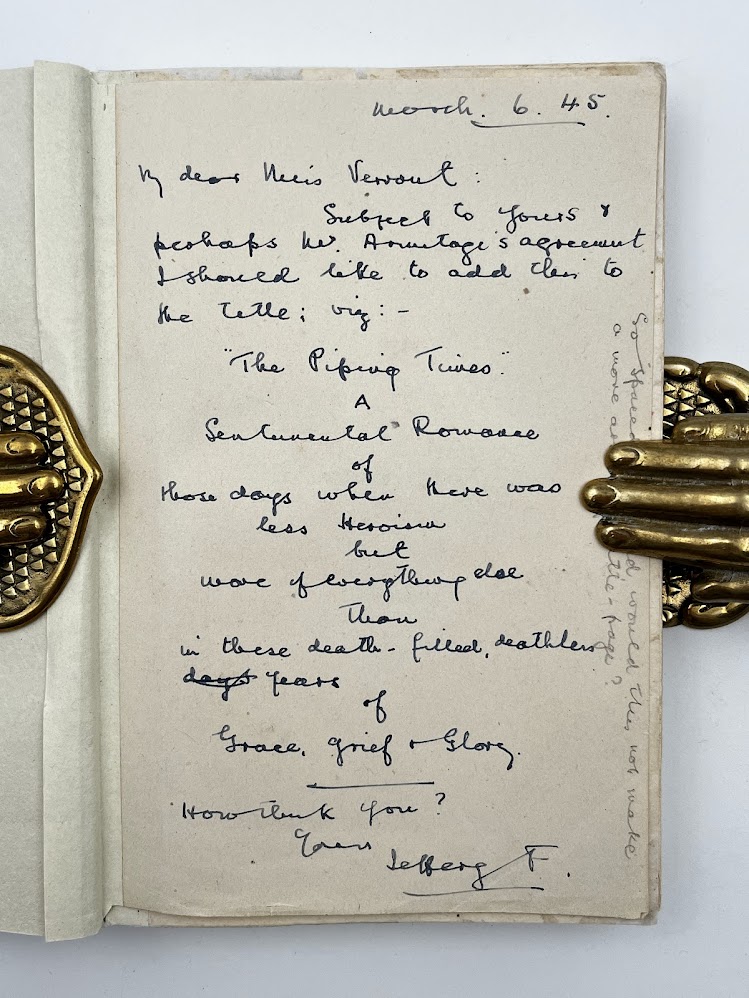 March. 6. 45.
My dear Miss Vervout:
Subject to yours &
perhaps Mr. Armitage's agreement
I should like to add this to
the title; viz:-
"The Piping Times."
A
Sentimental Romance
of
those days when there was
less Heroism
but
more of everything else
Than
in these death-filled, deathless
days years
of
Grace, grief & Glory.
How think you?
Yours
Jeffery F.
So spaced would this not make
a more title-page?